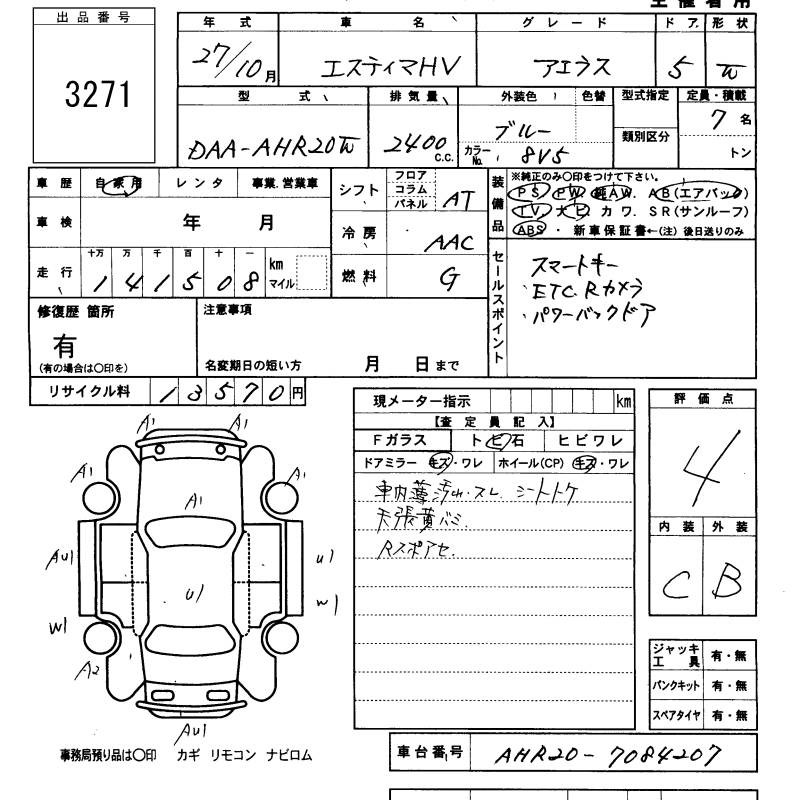 出品番号
3271
年式 車名 グレード ドア 形状
27/10月 エスティマHV アエラス 5 W
型式 排気量 外装色 色替 型式指定 定員・積載
DAA-AHR20W 2400 c.c. ブルー 7名
カラーNo. 8V5 類別区分 トン
車歴 自家用 レンタ 事業.営業車
車検 年 月
走行 十万 万 千 百 十 一 km マイル
1 4 1 5 0 8
シフト フロア コラム パネル AT
冷房 AAC
燃料 G
装備品
※純正のみ〇印をつけて下さい。
PS. PW. 純AW. AB(エアバッグ)
TV. ナビ. カワ. SR(サンルーフ)
ABS ・ 新車保証書←(注) 後日送りのみ
セールスポイント
スマートキー
・ETC.Rカメラ
・パワーバックドア
修復歴 箇所
有
(有の場合は〇印を)
注意事項
名変期日の短い方 月 日まで
リサイクル料 13570円
現メーター指示 km
【査定員記入】
Fガラス トビ石 ヒビワレ
ドアミラー キズ・ワレ ホイール(CP) キズ・ワレ
車内薄汚れ・スレ シートトケ
天張黄バミ
Rスポアセ.
評価点
4
内装 外装
C B
ジャッキ工具 有・無
パンクキット 有・無
スペアタイヤ 有・無
A1 A1
A1 A1 A1
AU1 U1 U1
W1 W1
A2
AU1
事務局預り品は〇印 カギ リモコン ナビロム
車台番号 AHR20-7084207